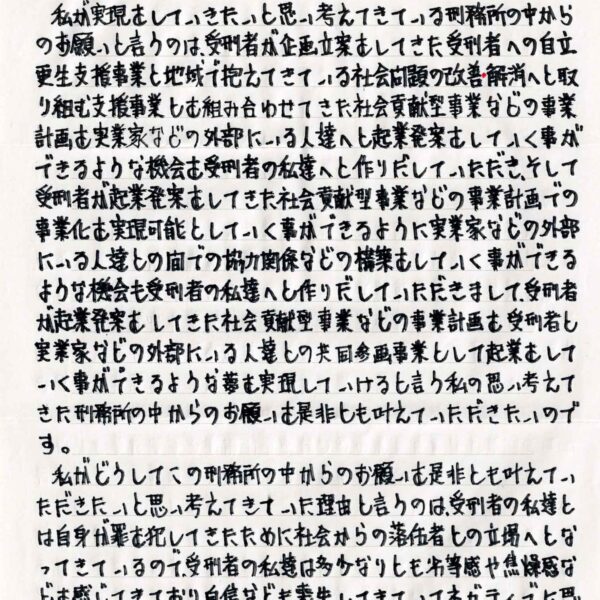 私が実現をしていきたいと思い考えてきている刑務所の中から
のお願いと言うのは、受刑者が企画立案をしてきた受刑者への自立
更生支援事業と地域で抱えてきている社会問題の改善・解消へと取
り組む支援事業とを組み合わせてきた社会貢献型事業などの事業
計画を実業家などの外部にいる人達へと起業発案をしていく事が
できるような機会を受刑者の私達へと作りだしていただき、そして
受刑者が起業発案をしてきた社会貢献型事業などの事業計画での
事業化を実現可能としていく事ができるように実業家などの外部
にいる人達との間での協力関係などの構築をしていく事ができる
ような機会も受刑者の私達へと作りだしていただきまして、受刑者
が起業発案をしてきた社会貢献型事業などの事業計画を受刑者と
実業家などの外部にいる人達との共同参画事業として起業をして
いく事ができるような夢を実現していけると言う私の思い考えて
きた刑務所の中からのお願いを是非とも叶えていただきたいので
す。
私がどうしてこの刑務所の中からのお願いを是非とも叶えてい
ただきたいと思い考えてきていた理由と言うのは、受刑者の私達と
は自身が罪を犯してきたために社会からの落任者との立場へとな
ってきているので、受刑者の私達は多少なりとも劣等感や焦燥感な
どを感じてきており自信なども喪失してきていてネガティブに思